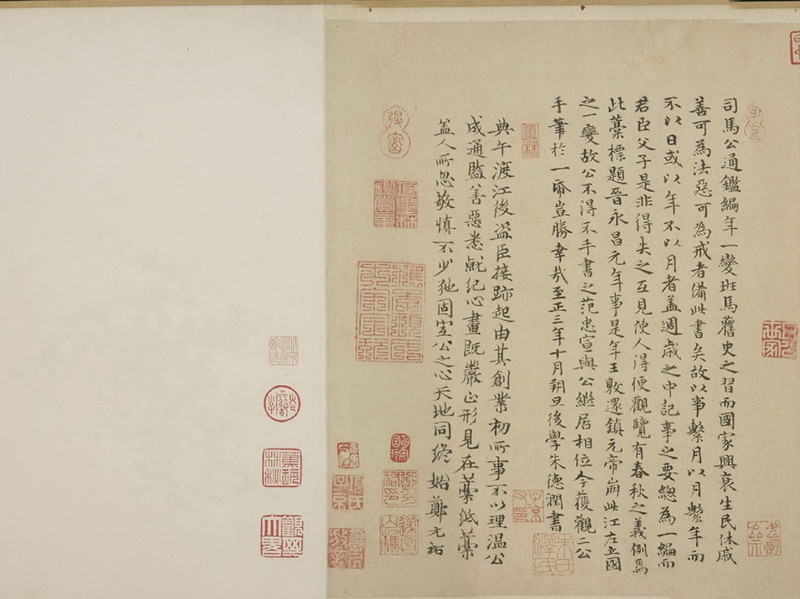 司馬公通鑑編年一變班馬舊史之習而國家興衰生民休戚
善可為法惡可為戒者備此書矣故以事繫月以月繫年而
不以日或以年不以月者盖週歲之中記事之要緫為一編而
君臣父子是非得失之互見使人得便觀覽有春秋之義例焉
此藁標題晉永昌元年事是年王敦還鎮元帝崩此江左立國
之一變故公不得不手書之范忠宣與公繼居相位今獲觀二公
手筆於一帋豈勝幸哉至正三年十月朔旦後學朱德潤書
典午渡江後盗臣接跡起由其創業初所事不以理溫公
成通監善惡悉就紀心畫既嚴正形見在藁紙藁
盖人所忽敬慎不少弛固宜公之心天地同終始鄭元祐